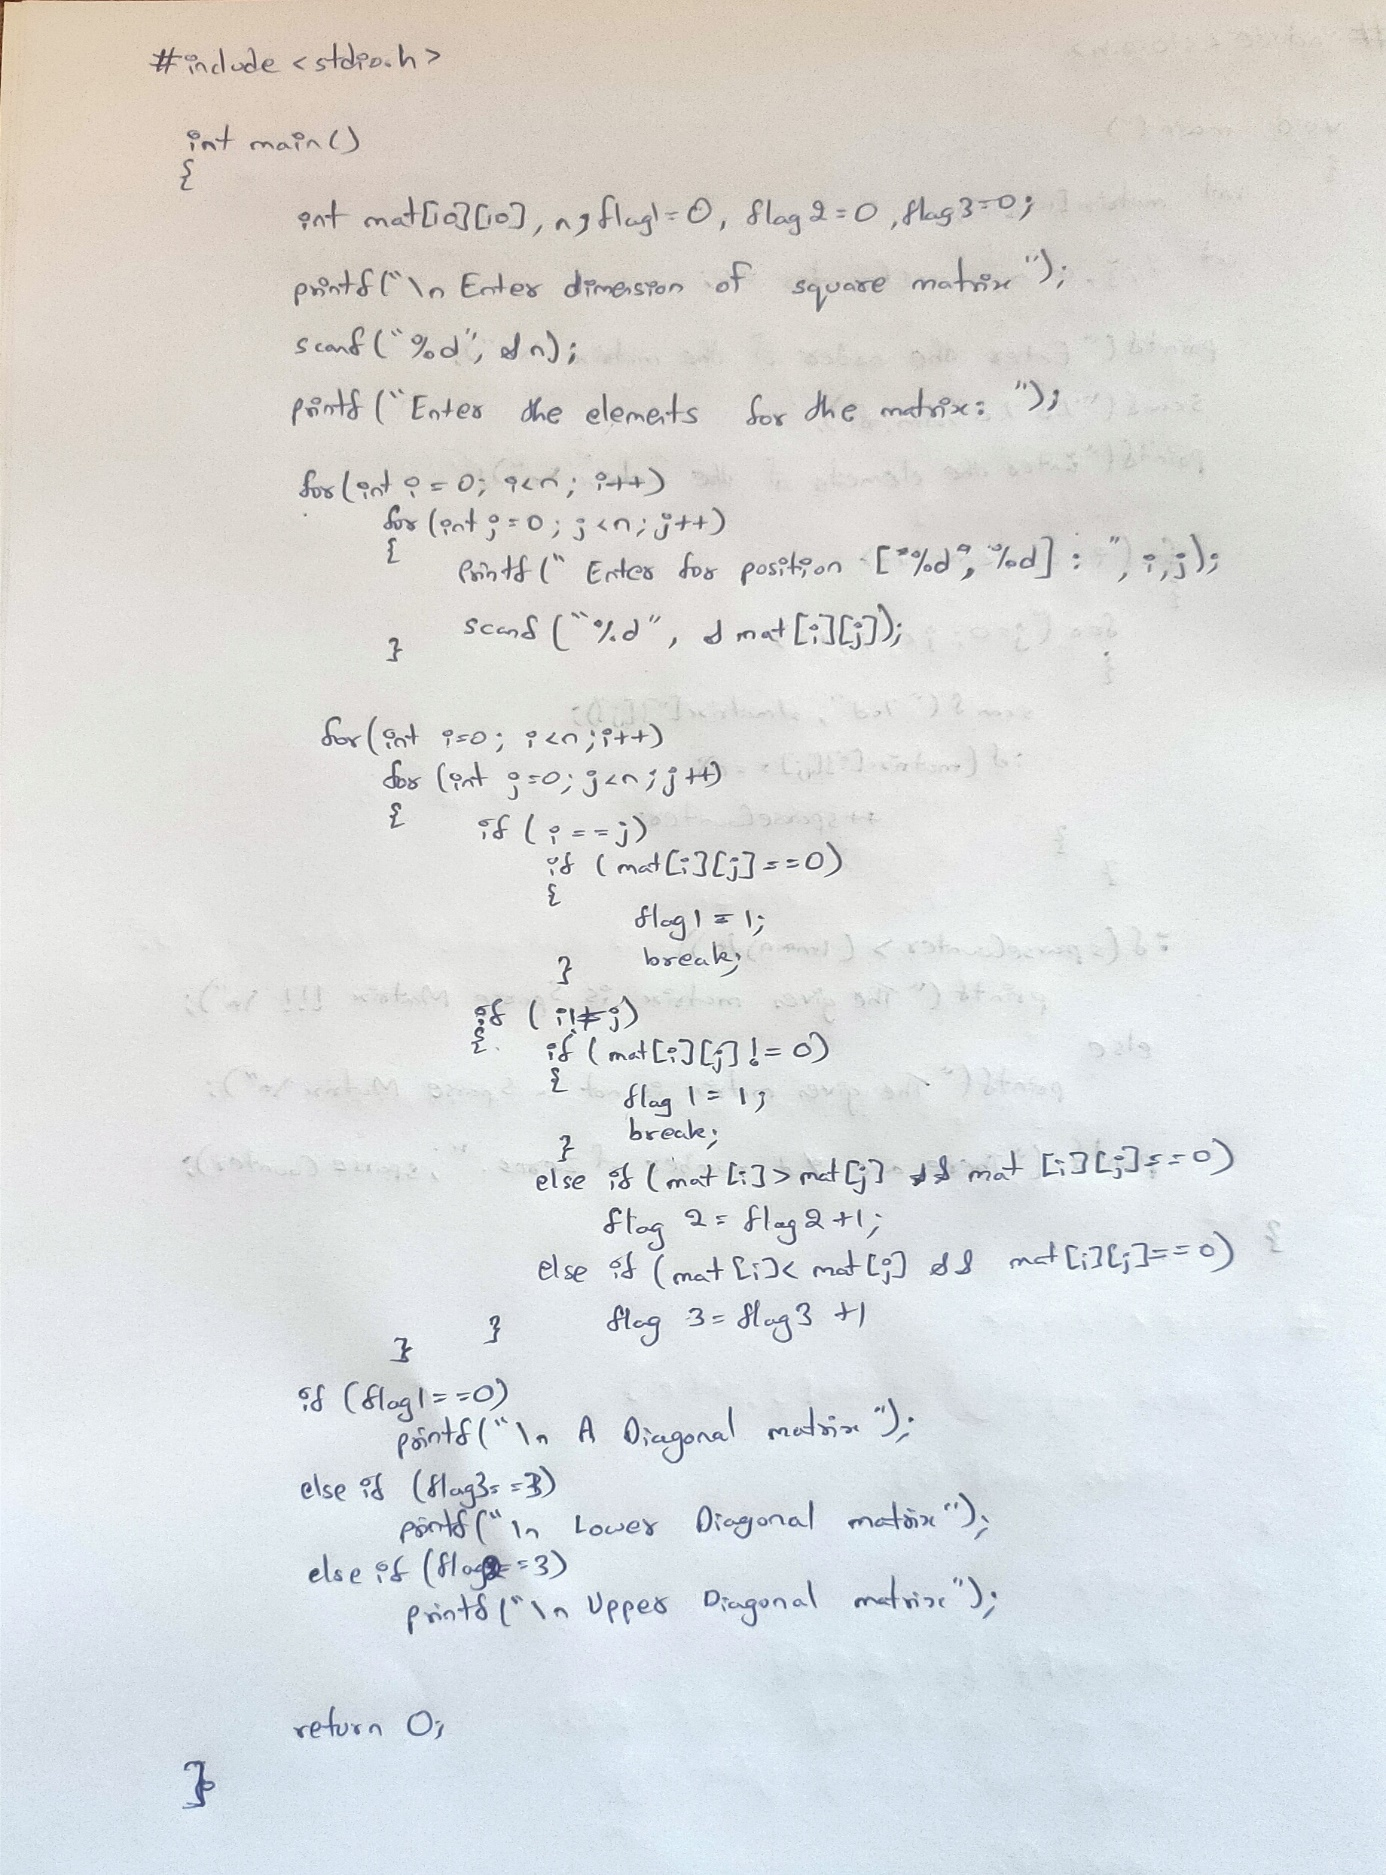 #include <stdio.h>
int main()
{
int mat[10][10], n, flag1=0, flag2=0, flag3=0;
printf("\n Enter dimension of square matrix");
scanf("%d", &n);
printf("Enter the elements for the matrix: ");
for(int i=0; i<n; i++)
for(int j=0; j<n; j++)
{
printf(" Enter for position ["%d", %d] : ", i,j);
scanf("%d", & mat[i][j]);
}
for(int i=0; i<n; i++)
for(int j=0; j<n; j++)
{
if(i==j)
if (mat[i][j]==0)
{
flag1=1;
break;
}
if (i!=j)
{
if (mat[i][j]!=0)
{
flag 1=1;
break;
}
else if (mat[i]>mat[j] && mat [i][j]==0)
flag 2= flag2+1;
else if (mat[i]< mat[j] && mat[i][j]==0)
flag 3= flag3 +1
}
}
if (flag1==0)
printf("\n A Diagonal matrix");
else if (flag3==3)
printf("\n Lower Diagonal matrix");
else if (flag2==3)
printf("\n Upper Diagonal matrix");
return 0;
}